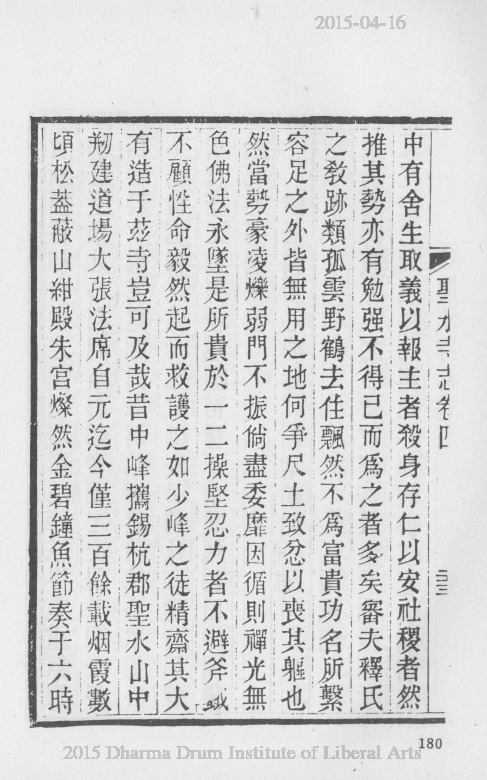 2015-04-16
聖水寺志卷四
中有舍生取義以報主者殺身存仁以安社稷者然
推其勢亦有勉强不得已而爲之者多矣審夫釋氏
之教跡類孤雲野鶴去住飄然不爲富貴功名所繫
容足之外皆無用之地何爭尺土致忿以喪其軀也
然當勢豪凌爍弱門不振倘盡委靡因循則禪光無
色佛法永墜是所貴於一二操堅忍力者不避斧
不顧性命毅然起而救護之如少峰之徒精齋其大
有造于茲寺豈可及哉昔中峰攜錫杭郡聖水山中
剏建道場大張法席自元迄今僅三百餘載烟霞數
頃松蓋蔽山紺殿朱宮燦然金碧鐘魚節奏于六時
180
2015 Dharma Drum Institute of Liberal Arts